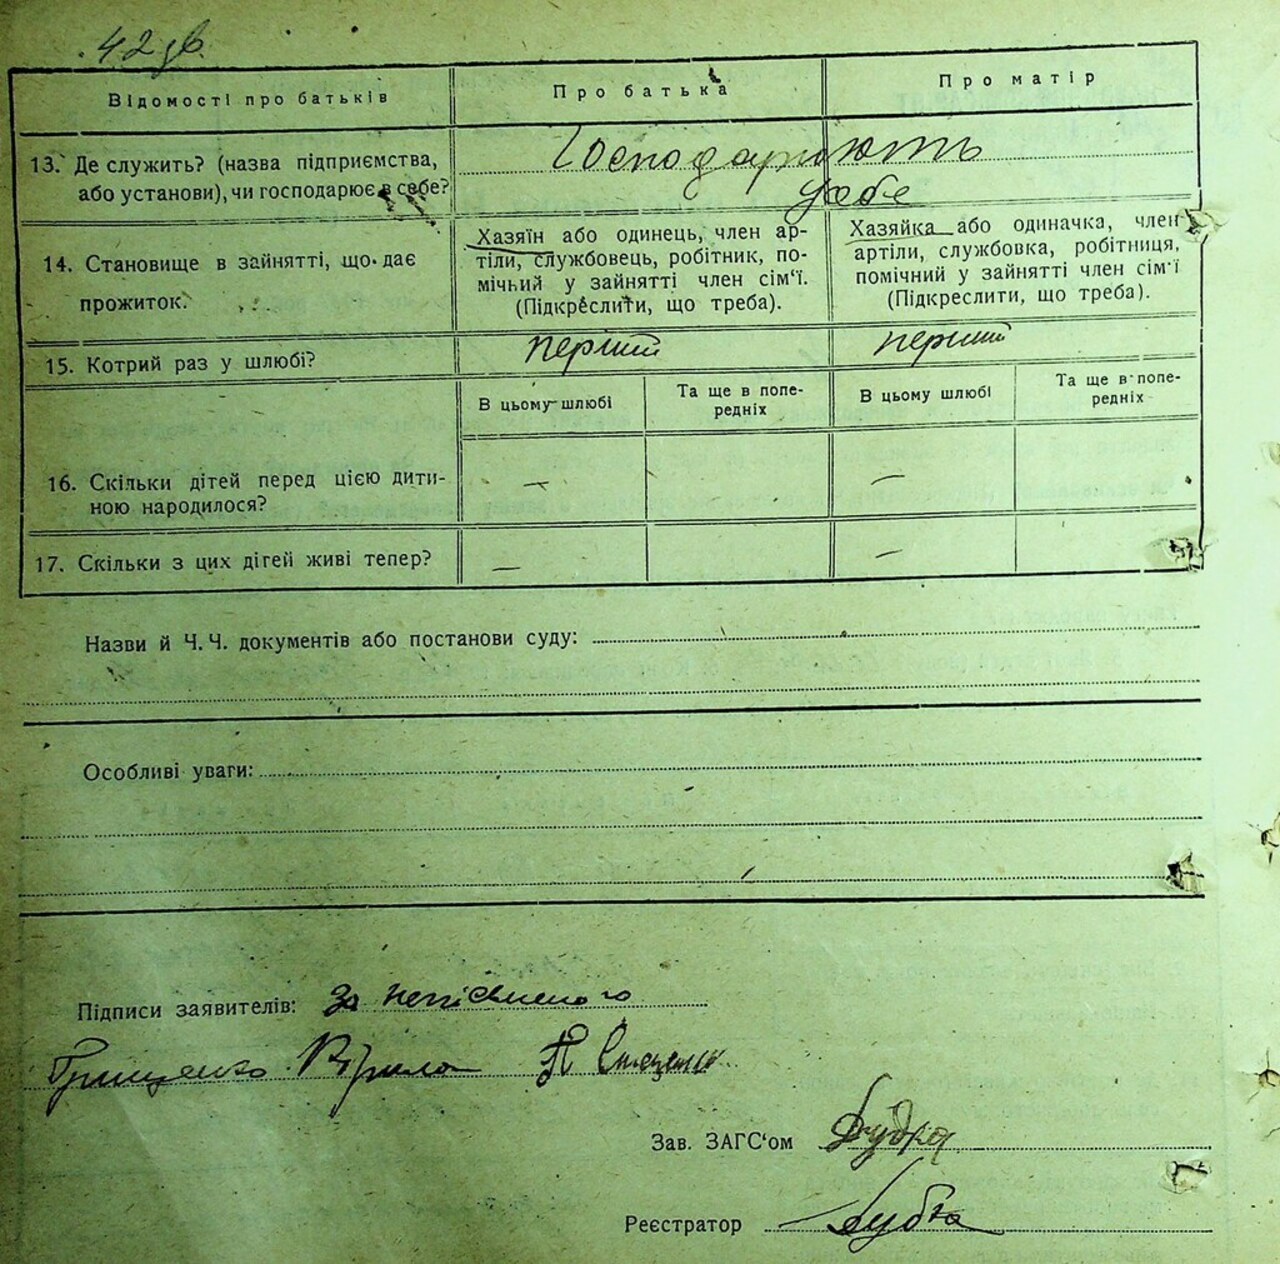 42 зв.
Відомості про батьків
Про батька
Про матір
13. Де служить? (назва підприємства,
або установи), чи господарює в себе?
Господарюють
у себе
14. Становище в зайнятті, що дає
прожиток.
Хазяїн або одинець, член ар-
тіли, службовець, робітник, по-
мічний у зайнятті член сім'ї.
(Підкреслити, що треба).
Хазяйка або одиначка, член
артіли, службовка, робітниця,
помічний у зайнятті член сім'ї
(Підкреслити, що треба).
15. Котрий раз у шлюбі?
перший
перший
В цьому шлюбі
Та ще в попе-
редніх
В цьому шлюбі
Та ще в попе-
редніх
16. Скільки дітей перед цією дити-
ною народилося?
—
—
17. Скільки з цих дігей живі тепер?
—
—
Назви й Ч. Ч. документів або постанови суду:
Особливі уваги:
Підписи заявителів: За неписменого
Грищенко Кірила
Зав. ЗАГС'ом Дудка
Реєстратор